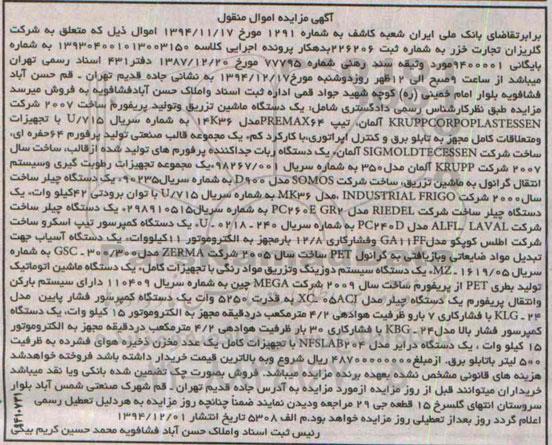 آگهی مزایده اموال منقول
برابرتقاضای بانک ملی ایران شعبه کاشف به شماره ۱۲۹۱ مورخ ۱۳۹۴/۱۱/۱۷ اموال ذیل که متعلق به شرکت
گلریزان تجارت خزر به شماره ثبت ۲۲۶۲۰۶بدهکار پرونده اجرایی کلاسه ۱۳۹۳۰۴۰۰۱۰۱۳۰۰۳۱۵۰ به شماره
بایگانی ۹۴۰۰۰۰۱مورد وثیقه سند رهنی شماره ۷۷۷۹۵ مورخ ۱۳۸۷/۱۲/۲۰ دفتر۴۳۱ اسناد رسمی تهران
میباشد از ساعت ۹صبح الی ۱۲ظهر روزدوشنبه مورخ۱۳۹۴/۱۲/۱۷ به نشانی جاده قدیم تهران . قم حسن آباد
فشافویه بلوار امام خمینی (ره) کوچه شهید جواد قمی اداره ثبت اسناد واملاک حسن آبادفشافویه به فروش میرسد
مزایده طبق نظرکارشناس رسمی دادگستری شامل: یک دستگاه ماشین تزریق وتولید پریفورم ساخت ۲۰۰۷ شرکت
KRUPPCORPOPLASTESSEN آلمان، تیپ PREMAX۶۴مدل ۱۴K۳۶ به شماره سریال U/۷۱۵ با تجهیزات
ومتعلقات کامل مجهز به تابلو برق و کنترل اپراتوری،با کارکرد کم، یک مجموعه قالب صنعتی تولید پرفورم ۶۴حفره ای،
ساخت شرکت SIGMOLDTECESSEN آلمان، یک دستگاه ربات جداکننده پرفورم های تولید شده ازقالب، ساخت سال
۲۰۰۷ شرکت KRUPP آلمان مدل۳۵۰ به شماره سریال ۹۸۲۶۷/۰۰۱،یک مجموعه تجهیزات رطوبت گیری وسیستم
انتقال گرانول به ماشین تزریق، ساخت شرکت SOMOS مدل D۹۰۰ به شماره سریال۹۰۲۳۵،یک دستگاه چیلر ساخت
سال۲۰۰۰ شرکت INDUSTRIAL FRIGO ،مدل MK۳۶ به شماره سریال U/۷۱۵ با توان برودتی ۴۲کیلو وات، یک
دستگاه چیلر ساخت شرکت RIEDEL مدل PC۲۶۰E GR۲ به شماره سریال۲۹۸۹۱۰۵۱۵،یک دستگاه چیلر ساخت
شرکت ALFL, LAVAL مدل PC۲۴۰D به شماره سریال ۲۴۰ - ۰۲۱۸ - U، یک دستگاه کمپرسور تیپ اسکرو ساخت
شرکت اطلس کوپکو مدلGA۱۱FF وفشارکاری ۱۲/۸ بارمجهز به الکتروموتور ۱۱کیلووات، یک دستگاه آسیاب جهت
تبدیل مواد ضایعاتی وبازیافتی به گرانول PET ساخت سال ۲۰۰۵ شرکت ZERMA مدل ۳۰۰/۳۰۰ - GSC به شماره
سریال MZ.۱۶۱۹/۰۵، یک دستگاه سیستم دوزینگ وتزریق مواد رنگی با تجهیزات کامل، یک دستگاه ماشین اتوماتیک
تولید بطری PET از پریفورم ساخت سال ۲۰۰۹ شرکت MEGA چین به شماره سریال ۱۱۰۴۰۹ دارای سیستم بارکن
وانتقال پریفورم یک دستگاه چیلر مدل XC-۰۵ACJ به قدرت ۵۲۵۰ وات یک دستگاه کمپرسور فشار پایین مدل
۲۴ - KLG با فشارکاری ۷ بارو ظرفیت هوادهی ۴/۲ مترمکعب دردقیقه مجهز به الکتروموتور ۱۵ کیلو وات، یک دستگاه
کمپرسور فشار بالا مدل۲۴ - KBG با فشارکاری ۳۰ بار ظرفیت هوادهی ۴/۲ مترمکعب دردقیقه مجهز به الکتروموتور
۱۵ کیلو وات ، یک دستگاه درایر مدل NFSLAB۲۰۴ با تجهیزات کامل،یک عدد مخزن ذخیره هوای فشرده به ظرفیت
۵۰۰ لیتر باتابلو برق. ازمبلغ۴۸۷۰۰۰۰۰۰۰۰ ریال شروع وبه بالاترین قیمت خریدار داشته باشد فروخته خواهدشد
هزینه های قانونی مشخص نشده بعهده برنده مزایده میباشد. فروش بصورت چک تضمین شده بانکی ویا نقد میباشد
خریداران میتوانند قبل از روز مزایده ازمورد مزایده به آدرس جاده قدیم تهران . قم شهرک صنعتی شمس آباد بلوار
سروستان انتهای گلسرخ ۱۵ قطعه جی ۲۹ مراجعه ودیدن نمایند ضمناً چنانچه روز مزایده به هردلیل تعطیل رسمی
اعلام گردد روز بعداز تعطیلی روز مزایده خواهد بود.م الف ۵۳۰۸ تاریخ انتشار ۱۳۹۴/۱۲/۰۱
رئیس ثبت اسناد واملاک حسن آباد فشافویه محمد حسین کریم بیگی